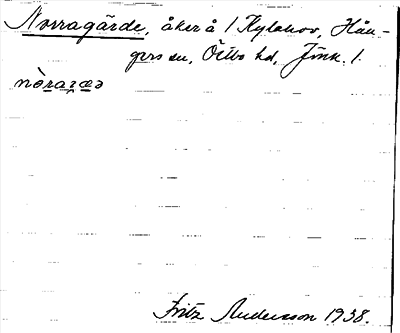 Norragärde, åker å 1 Kylahov, Hån-
gers sn, Östbo hd, Jönk. l.
nòrajæ̀ə
Fritz Andersson 1938.